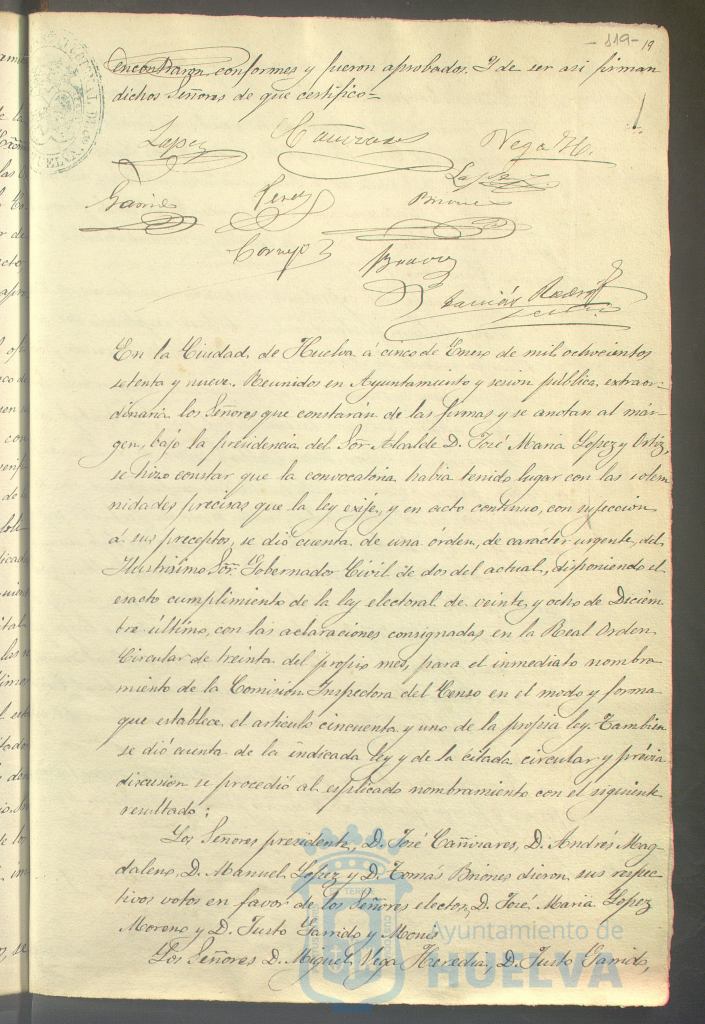 -119- 19
encontraron conformes y fueron aprobados. Y de ser asi firman
dichos Señores de que certifico=
Lopez Cañizares Vega H.
Lopez
Garrido Perez Briones
Cornejo Bravo
En la Ciudad de Huelva á cinco de Enero de mil ochocientos
setenta y nueve. Reunidos en Ayuntamiento y sesion pública extraor-
dinaria los Señores que constarán de las firmas y se anotan al már-
gen, bajo la presidencia del Sor Alcalde D. José Maria Lopez y Ortiz,
se hizo constar que la convocatoria habia tenido lugar con las solem
nidades precisas que la ley exije, y en acto continuo, con sujeccion
á sus preceptos, se dió cuenta de una órden, de carácter urgente, del
Ilustrisimo Sor. Gobernador Civil de dos del actual, disponiendo el
esacto cumplimiento de la ley electoral de veinte y ocho de Diciem
bre último, con las aclaraciones consignadas en la Real Orden
Circular de treinta del propio mes, para el inmediato nombra
miento de la Comision Inspectora del Censo en el modo y forma
que establece el articulo cincuenta y uno de la propia ley. Tambien
se dió cuenta de la indicada ley y de la citada circular y prévia
discusion se procedió al esplicado nombramiento con el siguiente
resultado:
Los Señores presidente, D. José Cañizares, D. Andrés Mag
daleno, D. Manuel Lopez y D. Tomás Briones dieron sus respec
tivos votos en favor de los Señores elector, D. José Maria Lopez
Moreno y D. Justo Garrido y Mones
Los Señores D. Miguel Vega Heredia, D. Justo Garrido,
Ayuntamiento de
HUELVA